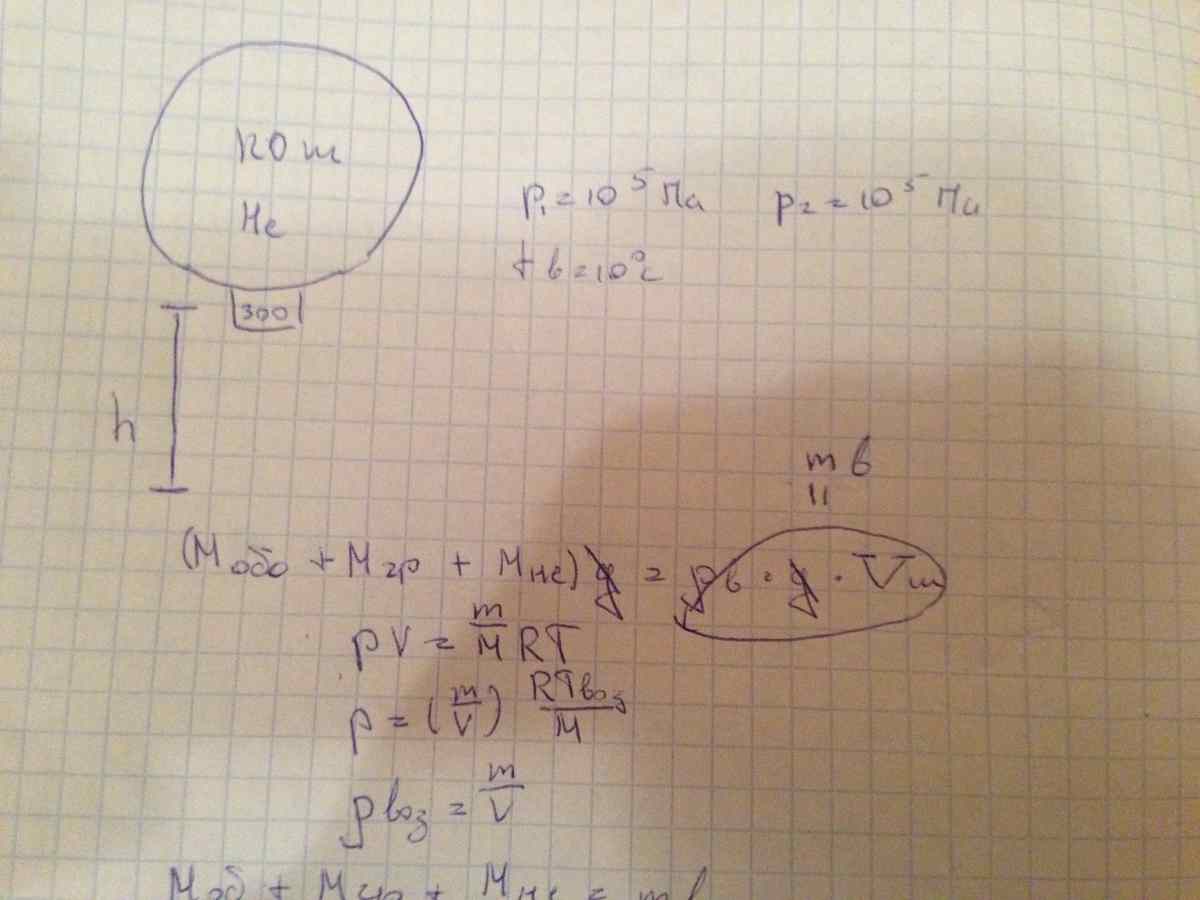 120 m
He
300
h
p₁ = 10⁵ Па p₂ = 10⁵ Па
t в = 10°C
m в
(M обо + M гр + M не) g = ρ в · g · V ш
pV = m/M RT
p = (m/V) RTвоз/M
ρ воз = m/V
M об + M гр + M не = m в